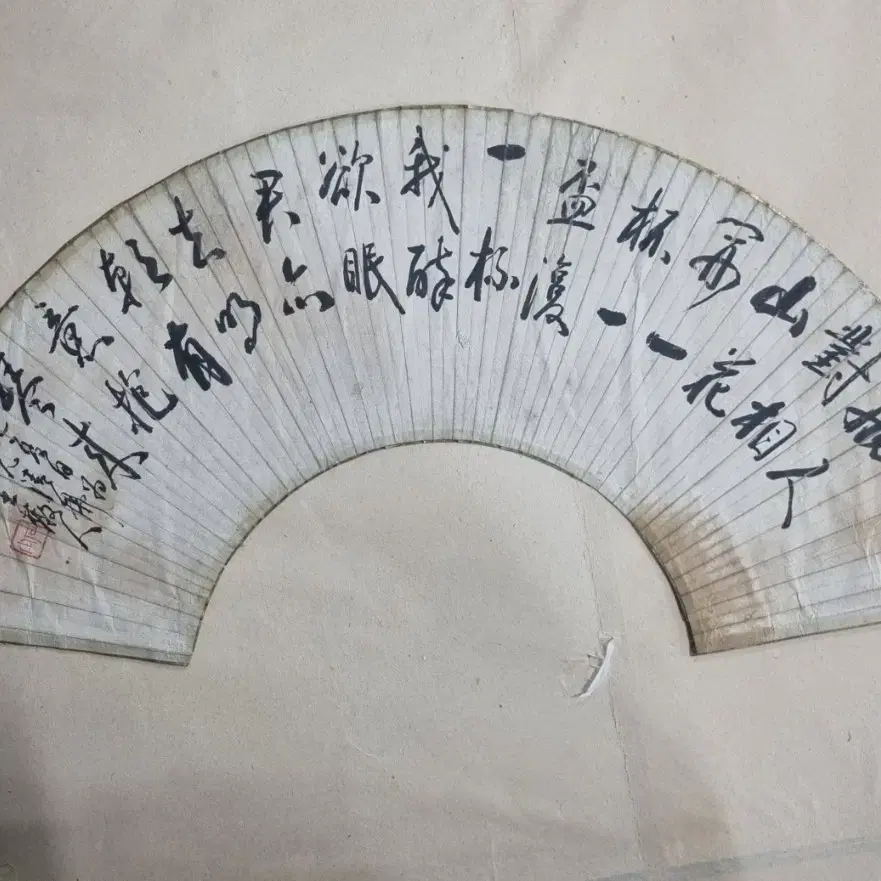 人
對酌
山花
開一
杯一
盃復
一杯
我醉
欲眠
君且
去明
朝有
意抱
琴來